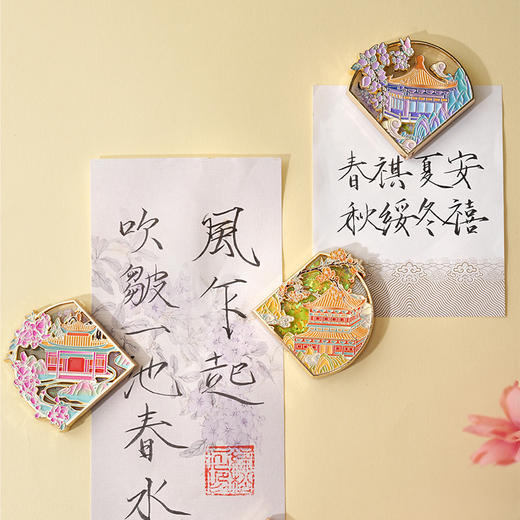 風乍起
吹皺一池春水
春祺夏安
秋綏冬禧